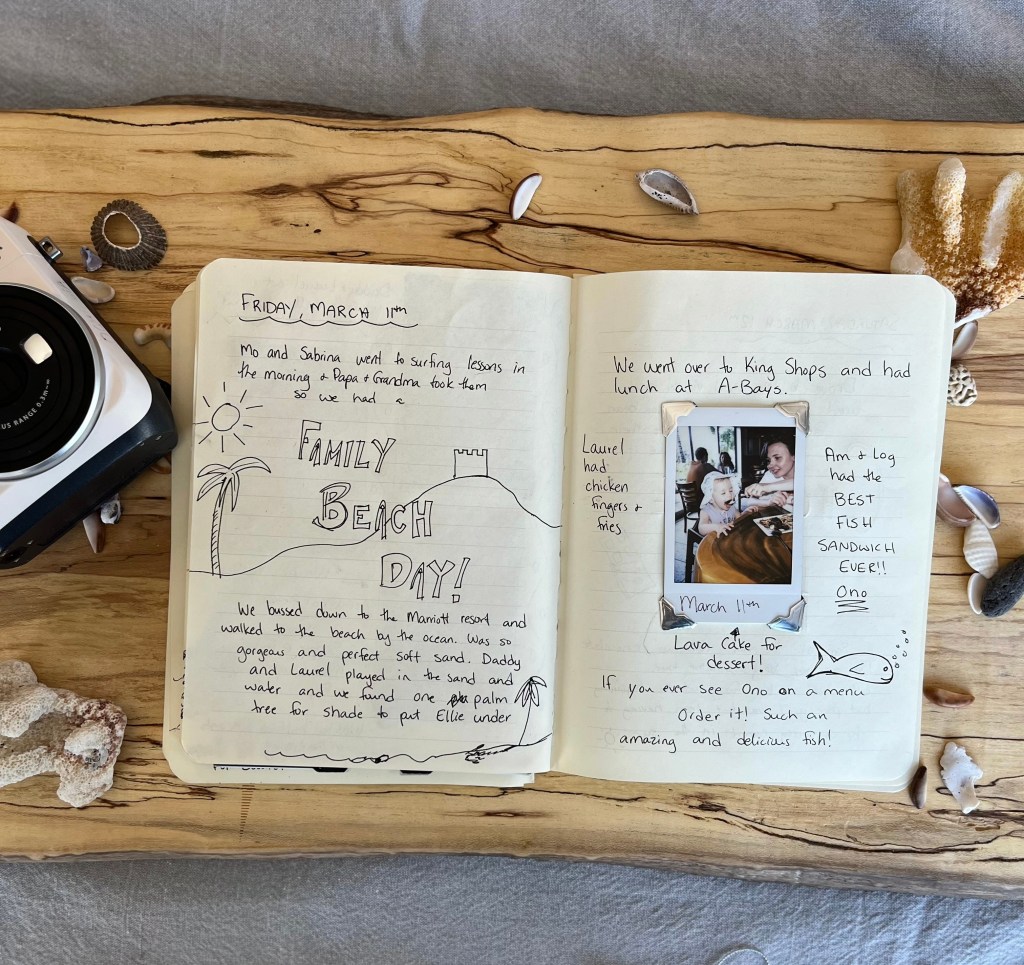 FRIDAY, MARCH 11th
Mo and Sabrina went to surfing lessons in
the morning & Papa & Grandma took them
so we had a
FAMILY
BEACH
DAY!
We bussed down to the Marriott resort and
walked to the beach by the ocean. Was so
gorgeous and perfect soft sand. Daddy
and Laurel played in the sand and
water and we found one palm
tree for shade to put Ellie under
We went over to King Shops and had
lunch at A-Bays.
Laurel
had
chicken
fingers &
fries
March 11th
Am & Log
had the
BEST
FISH
SANDWICH
EVER!!
Ono
Lava Cake for
dessert!
If you ever see Ono on a menu
Order it! Such an
amazing and delicious fish!
US RANGE 0.3m~∞